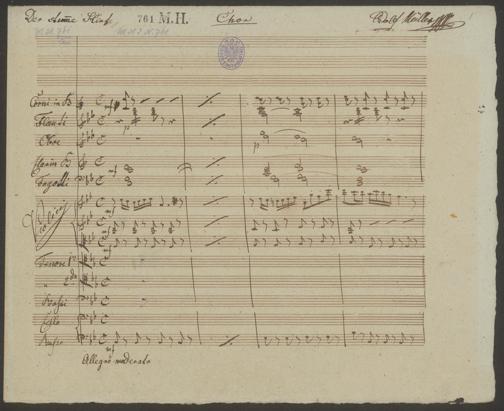 Der Arme 761 M.H. Chor Adolf Müller
Corni in B
Flauti
Oboe
Clarin B
Fagotti
Violini
Tenore 1mo
2do
Bassi
Cello
Basso
Allegro moderato